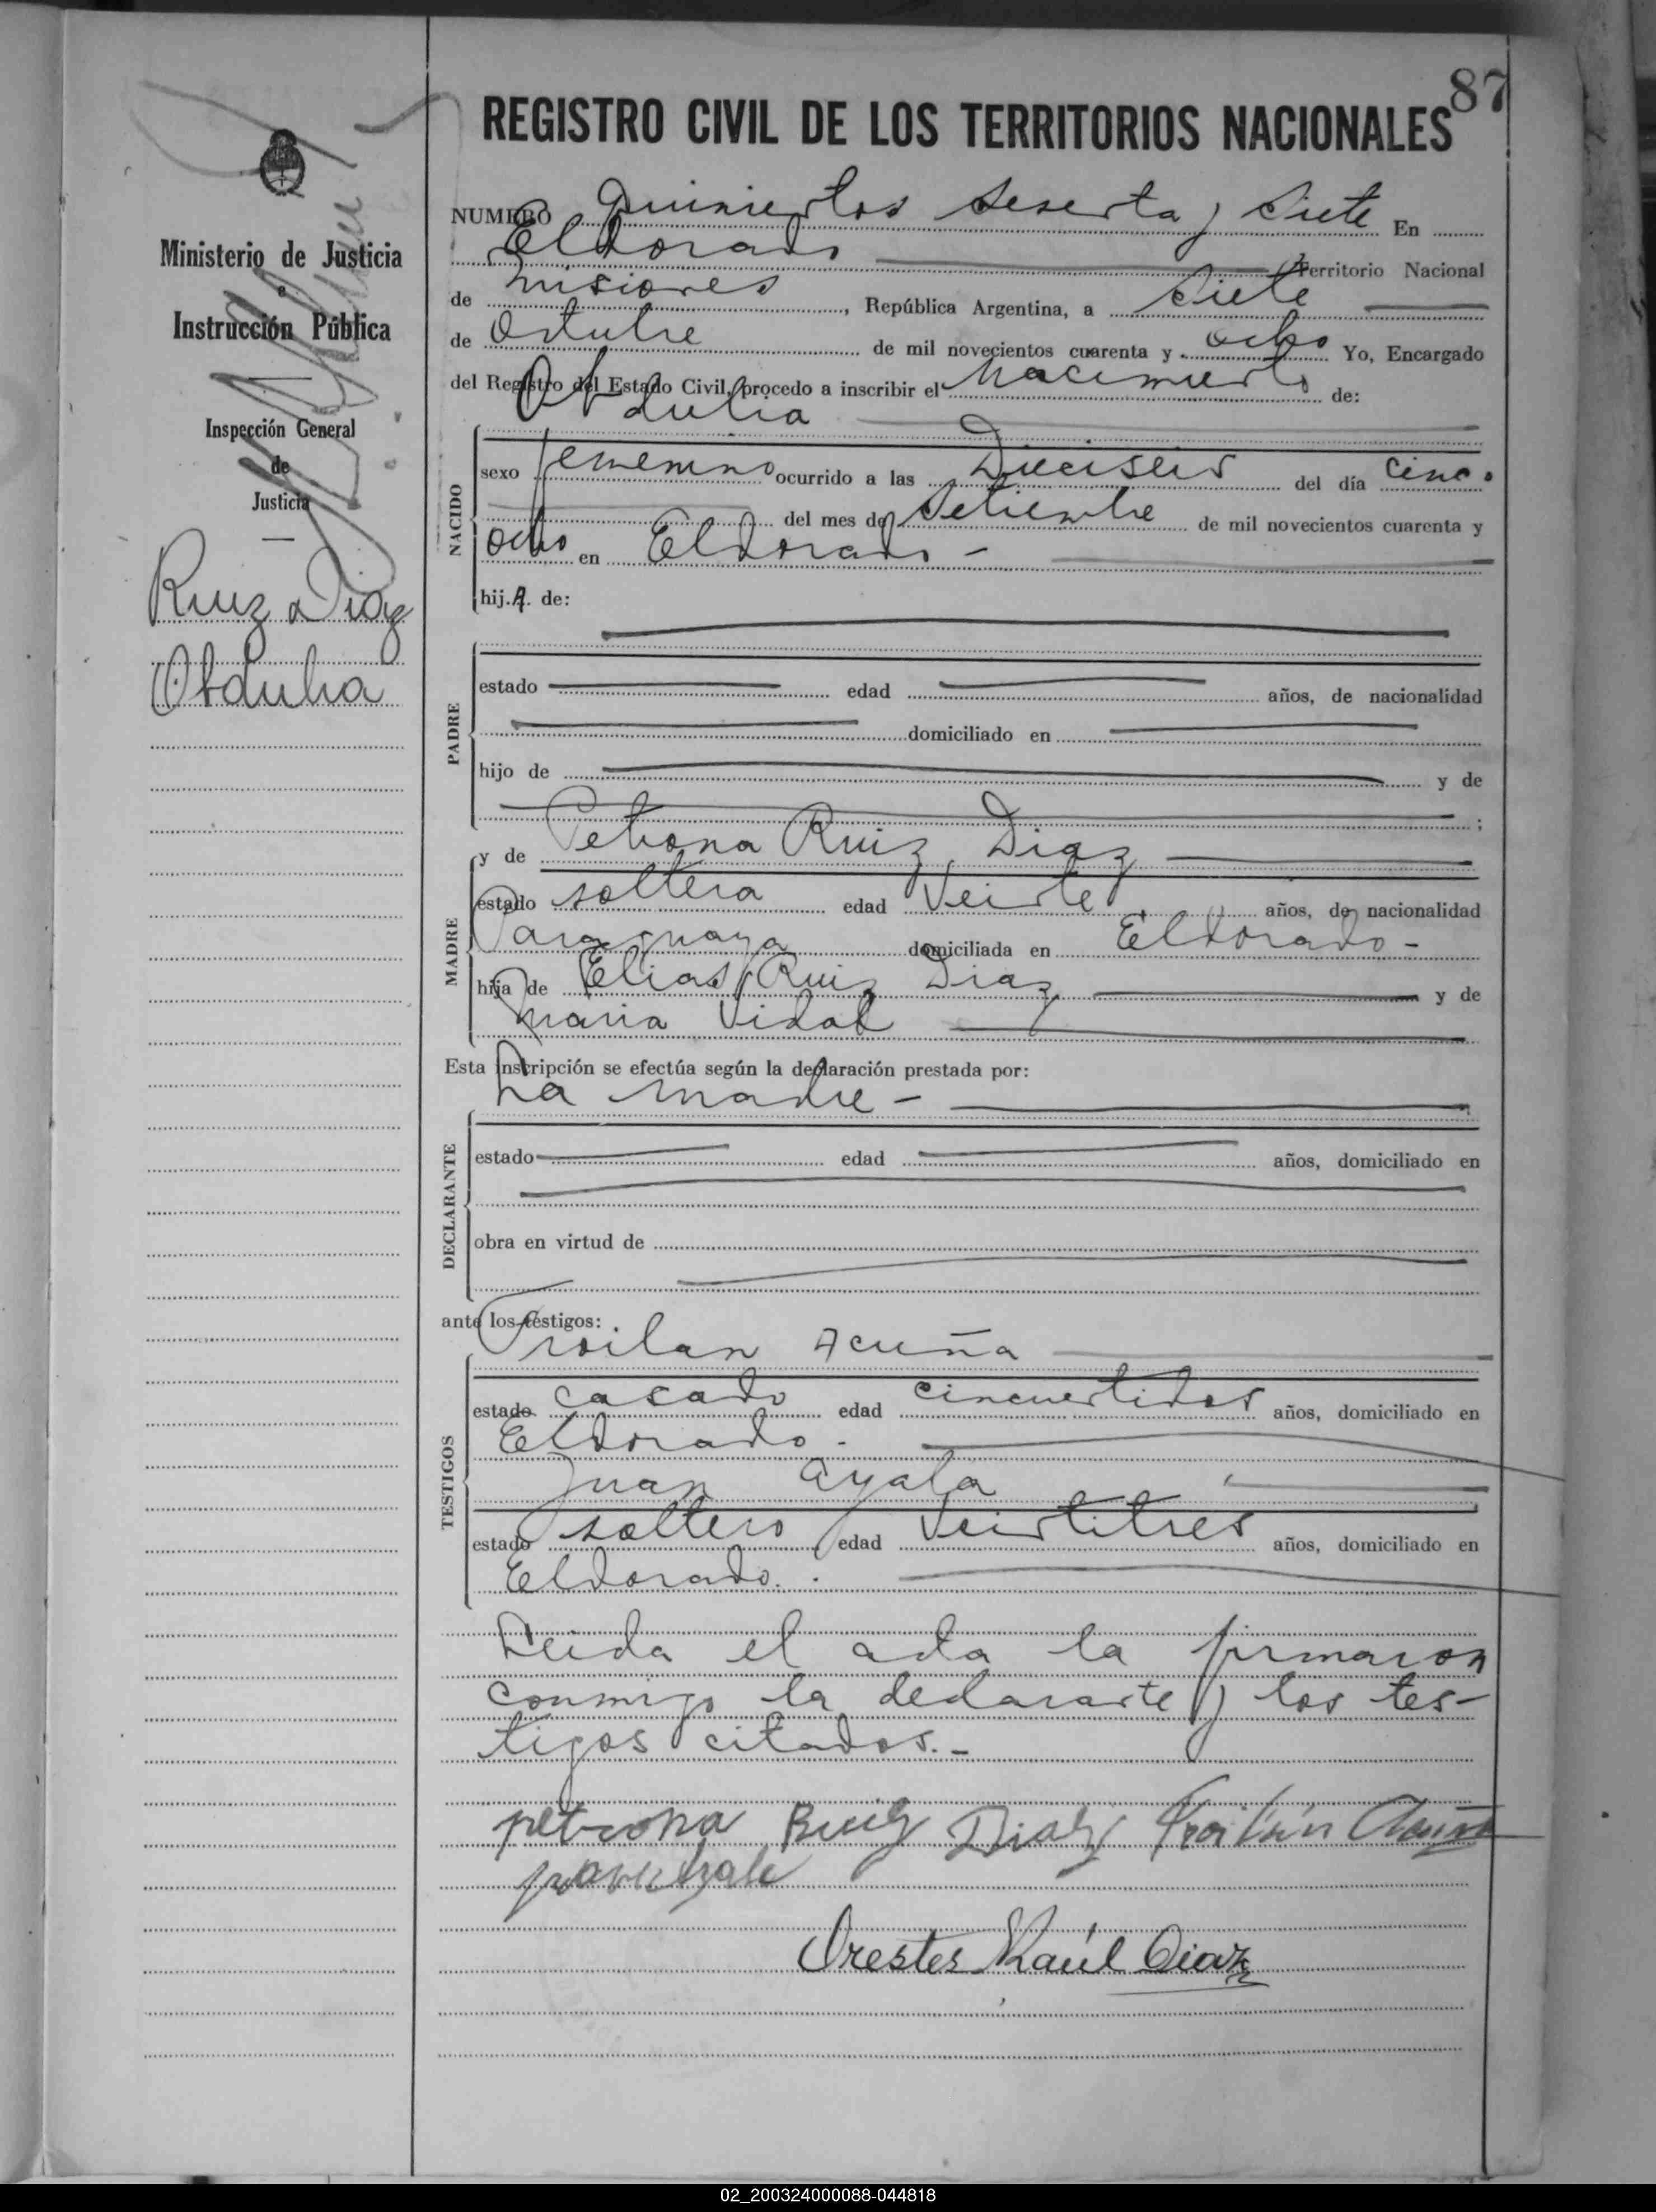 87
REGISTRO CIVIL DE LOS TERRITORIOS NACIONALES
Ministerio de Justicia
e
Instrucción Pública
Inspección General
de
Justicia
Ruiz Diaz
Obdulia
NUMERO Quinientos sesenta y siete En
Eldorado Territorio Nacional
de Misiones, República Argentina, a siete
de Octubre de mil novecientos cuarenta y ocho Yo, Encargado
del Registro del Estado Civil, procedo a inscribir el Nacimiento de:
Obdulia
NACIDO
sexo femenino ocurrido a las Dieciseis del día cinco
del mes de Setiembre de mil novecientos cuarenta y
ocho en Eldorado -
hij.A. de:
PADRE
estado edad años, de nacionalidad
domiciliado en
hijo de y de
;
MADRE
y de Petrona Ruiz Diaz
estado soltera edad Veinte años, de nacionalidad
Paraguaya domiciliada en Eldorado -
hija de Elias Ruiz Diaz y de
Maria Vidal
Esta inscripción se efectúa según la declaración prestada por:
La madre -
DECLARANTE
estado edad años, domiciliado en
obra en virtud de
ante los testigos:
Troilan Acuña
TESTIGOS
estado casado edad cincuentidos años, domiciliado en
Eldorado.
Juan Ayala
estado soltero edad Veintitres años, domiciliado en
Eldorado.
Leida el acta la firmaron
conmigo la declarante y los tes-
tigos citados.-
petrona Ruiz Diaz Troilán Acuña
Orestes Raúl Diaz
02_200324000088-044818